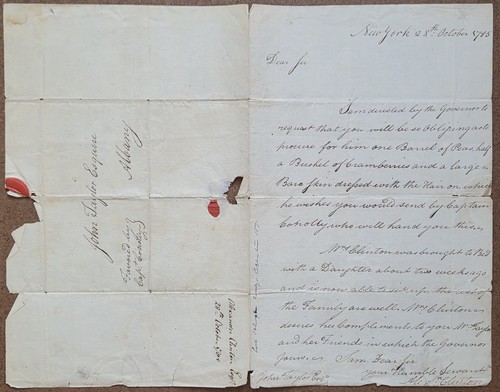 New York 28th October 1785
Dear Sir
I am directed by the Governor to
request that you will be so Obliging as to
procure for him one Barrel of Peas, half
a Bushel of Cramberries and a large
Bare Skin dressed with the Hair on which
he wishes you would send by Captain
Conolly who will hand you this
Mrs Clinton was brought to Bed
with a Daughter about two weeks ago
and is now able to up the rest of
the Family are well. Mrs Clinton
desires her Compliments to you Mrs Taylor
and her Friends in which the Governor
Joins. I am Dear Sir
your Humble Servant
Clinton
John Taylor Esqr
John Taylor Esquire
Albany
Favored by
Capt
28th October 1785